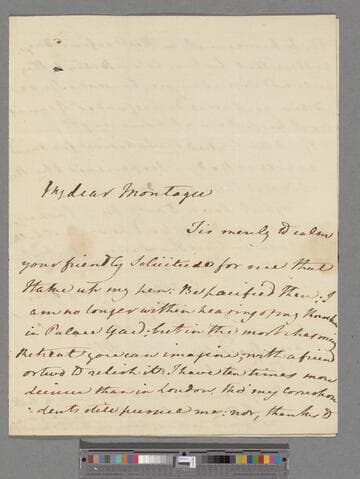 My dear Montagu
Tis merely to calm
your friendly Solicitude for me that
I take up my pen: Be pacified then: I
am no longer within hearing of my Knocker
in Palace Yard: but in the most charming
Retreat you can imagine, with a friend
or two to relish it: I have ten times more
leisure than in London, tho' my correspon
:dents still pursue me: nor, thanks to